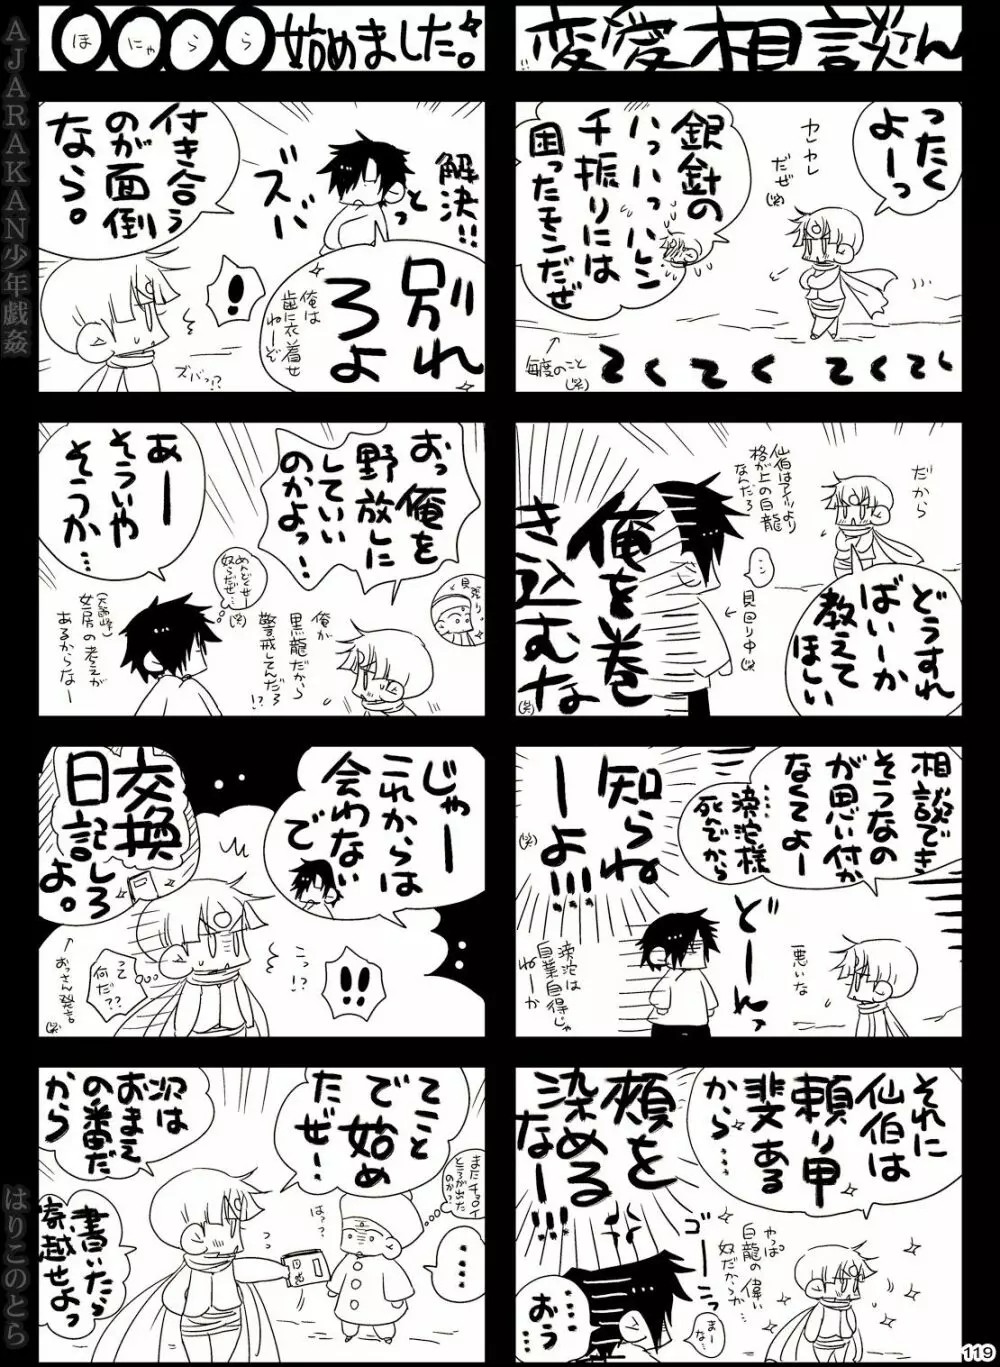 変愛相談ん
ったく
よーっ
ヤレヤレ
だぜ(笑)
銀針の
ハっハっハレン
千振りには
困ったモンだぜ
毎度のこと
(笑)
てくてくてくてく
だから
仙伯はアイツより
格が上の白龍
なんだろ
どうすれ
ばいーか
教えて
ほしい
見回り中(笑)
俺を巻
き込むな
(笑)
相談でき
そうなの
が思い付か
なくてよー
…滂沱様
死んでから
悪いな
どーんっ
知らね
ーよ!!!
(笑)
滂沱は
自業自得じゃ
ねーか
それに
仙伯は
頼り甲
斐ある
から……
やっぱ
白龍の偉い
奴だからか
ゴーーーっ
まーな…
頬を
染める
なーっ
……
おう…
ほにゃらら始めました。
解決!!
っと
ズバ
付き合う
のが面倒
なら。
別れ
ろよ
俺は
歯に衣着せ
ねーぞ
!
ズバっ!?
おっ俺を
野放しに
していい
のかよっ…
見張り
俺が
黒龍だから
警戒してんだろ
!?
めんどくせー
奴らだぜ…
(笑)
あー
そういや
そうか…
女房の考えが
あるからなー
じゃー
これからは
会わない
で
交換
日記しろ
よ。
おっさん発言(笑)
こっ!?
!!
って
何だ??
てこと
で始め
たぜ…
またチョロイ
ところが出た
のか?
……
はっ?
次は
おまえ
の番だ
から
書いたら
寄越せよっ
AJARAKAN少年戯姦
はりこのとら
119